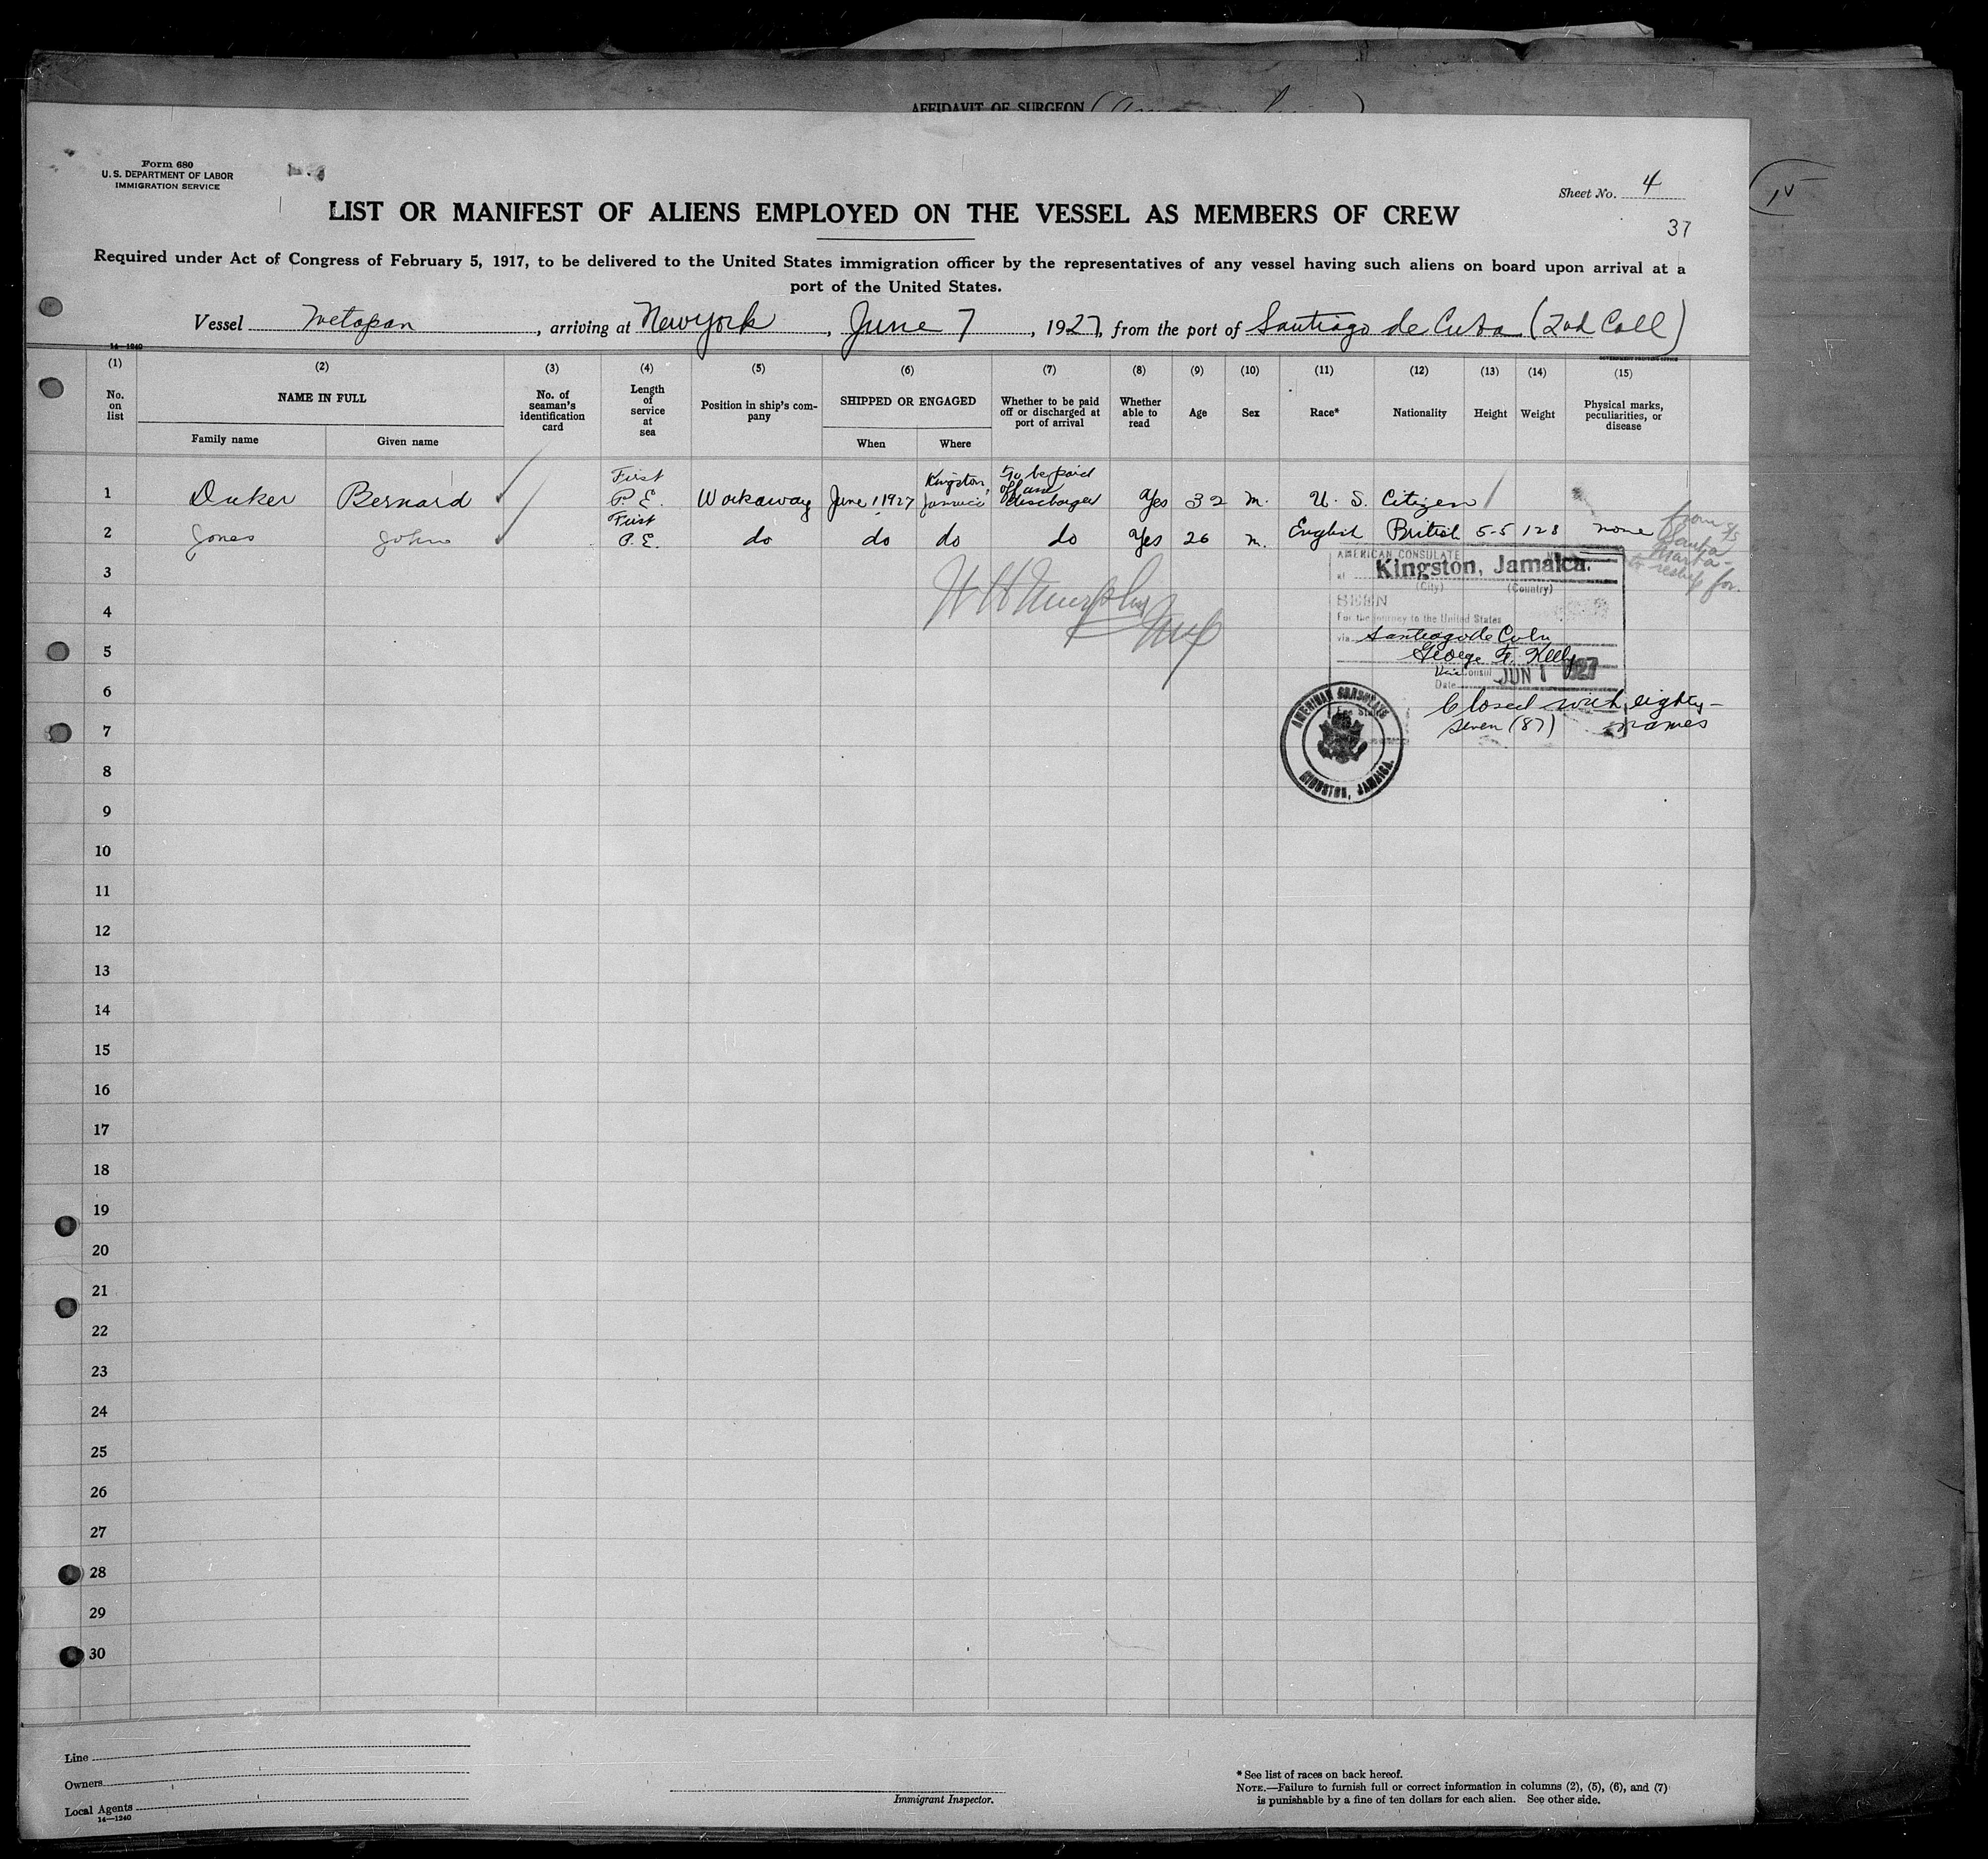 AFFIDAVIT OF SURGEON
Form 680
U. S. DEPARTMENT OF LABOR
IMMIGRATION SERVICE
Sheet No. 4
37
LIST OR MANIFEST OF ALIENS EMPLOYED ON THE VESSEL AS MEMBERS OF CREW
Required under Act of Congress of February 5, 1917, to be delivered to the United States immigration officer by the representatives of any vessel having such aliens on board upon arrival at a
port of the United States.
Vessel Metapan, arriving at New York, June 7, 1927, from the port of Santiago de Cuba (2nd Call)
14—1240
GOVERNMENT PRINTING OFFICE
(1) (2) (3) (4) (5) (6) (7) (8) (9) (10) (11) (12) (13) (14) (15)
No. on list
NAME IN FULL
Family name Given name
No. of seaman's identification card
Length of service at sea
Position in ship's company
SHIPPED OR ENGAGED
When Where
Whether to be paid off or discharged at port of arrival
Whether able to read
Age Sex Race* Nationality Height Weight
Physical marks, peculiarities, or disease
1 Duker Bernard First P.E. Workaway June 1 1927 Kingston, Jamaica To be paid off and discharged Yes 32 m. U. S. Citizen
2 Jones John First P.E. do do do do Yes 26 m. English British 5-5 128 none
from SS
Santa
Marta -
to reship for.
3
4
5
6
7
8
9
10
11
12
13
14
15
16
17
18
19
20
21
22
23
24
25
26
27
28
29
30
W H Murphy
AMERICAN CONSULATE
at Kingston, Jamaica.
(City) (Country)
SEEN
For the journey to the United States
via Santiago de Cuba
George F. Kelly
Vice Consul
Date JUN 1 1927
AMERICAN CONSULATE
KINGSTON, JAMAICA.
Closed with eighty-
seven (87) names
Line
Owners
Local Agents
14—1240
Immigrant Inspector.
* See list of races on back hereof.
NOTE.—Failure to furnish full or correct information in columns (2), (5), (6), and (7)
is punishable by a fine of ten dollars for each alien. See other side.